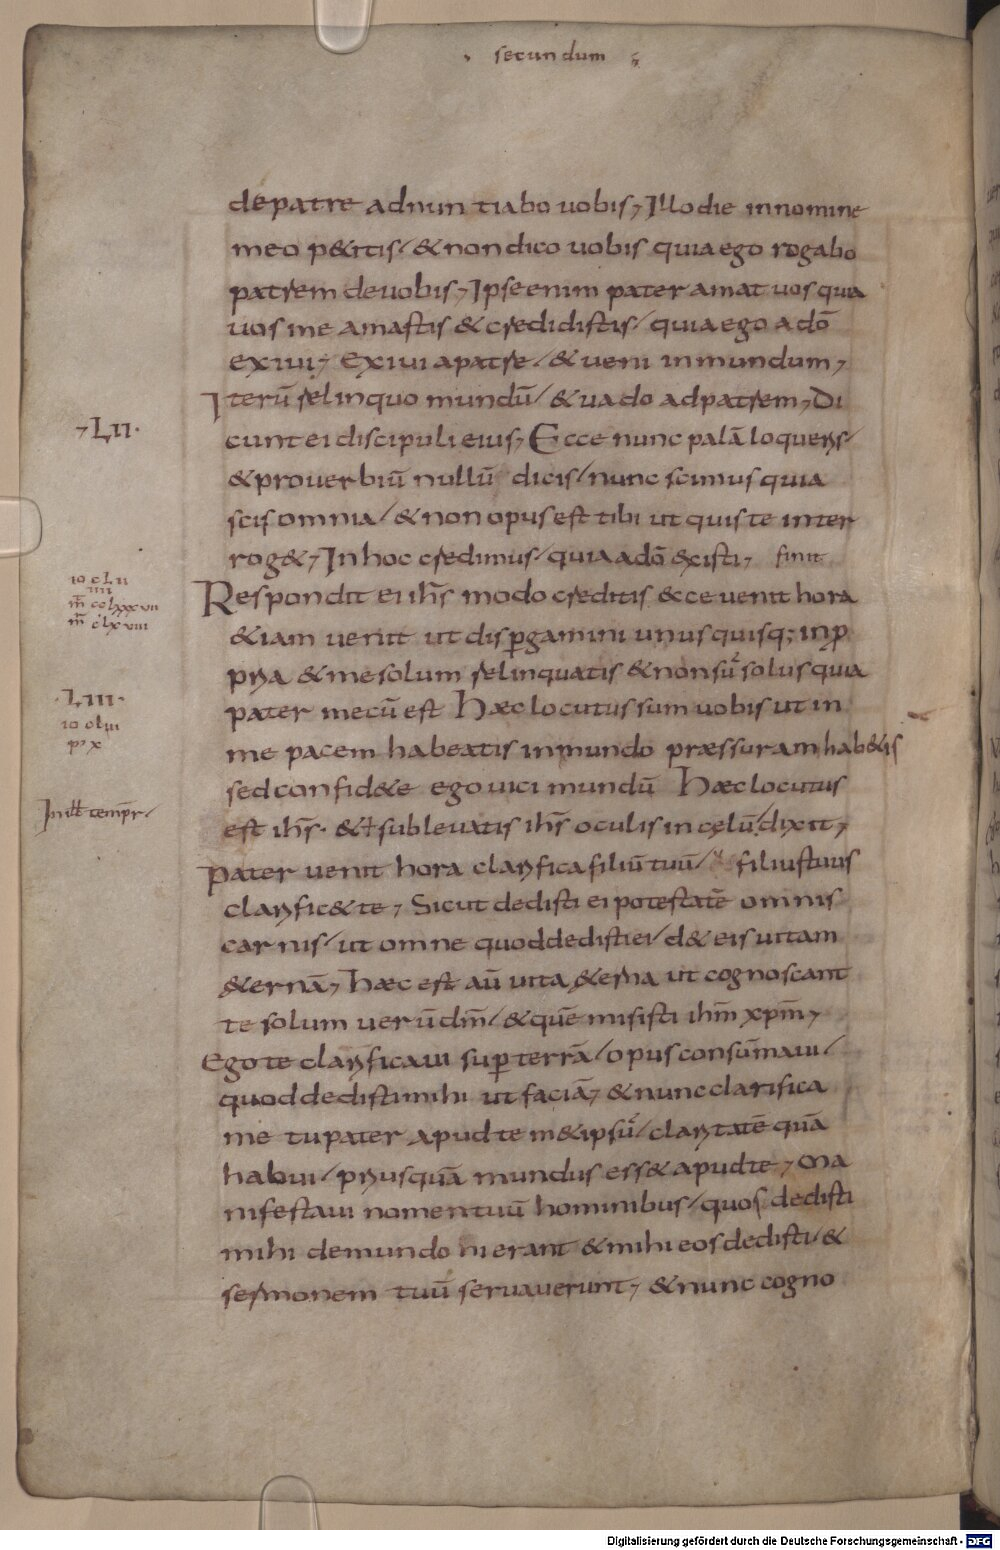 secundum
depatre adnuntiabo uobis, Illodie innomine
meo p&itis / & nondico uobis quiaego rogabo
patrem deuobis, Ipseenim pater amat uos quia
uos me amastis & credidistis / quiaego adō
exiui, Exiui apatre / & ueni inmundum,
Iterū relinquo mundū / & uado adpatrem, Di
cunt ei discipuli eius, Ecce nunc palā loqueris /
& prouerbiū nullū dicis / nunc scimus quia
scis omnia / & non opus est tibi ut quis te inter
rog&, Inhoc credimus / quia adō existi, finit
Respondit ei ihs̄ modo creditis & ce uenit hora
& iam uenit ut dispgamini unus quisq; inp
pria & mesolum relinquatis & nonsū solus quia
pater mecū est Haec locutus sum uobis ut in
me pacem habeatis inmundo praessuram hab&is
sed confid&e ego uici mundū Haec locutus
est ihs̄ . & subleuatis ihs̄ oculis in cęlū / dixit,
Pater uenit hora clarifica filiū tuū / filiustuus
clarific& te, Sicut dedisti ei potestatē omnis
carnis / ut omne quoddedistiei / d& eis uitam
&ernā, Haec est aū uita &erna ut cognoscant
te solum uerū dm̄ / & quē misisti ihm̄ xpm̄,
Ego te clarificaui sup terrā / opus consūmaui /
quoddedistimihi ut faciā, & nunc clarifica
me tupater apud te m&ipsū / claritatē quā
habui / priusquā mundus ess& apudte, Ma
nifestaui nomentuū hominibus / quos dedisti
mihi demundo hierant & mihi eos dedisti / &
sermonem tuū seruauerunt, & nunc cogno
, LII .
io clii
iiii
m̄ cclxxxvii
m̄ clxviii
. LIII .
io cliii
p' x
In ill tempr /
Digitalisierung gefördert durch die Deutsche Forschungsgemeinschaft - DFG